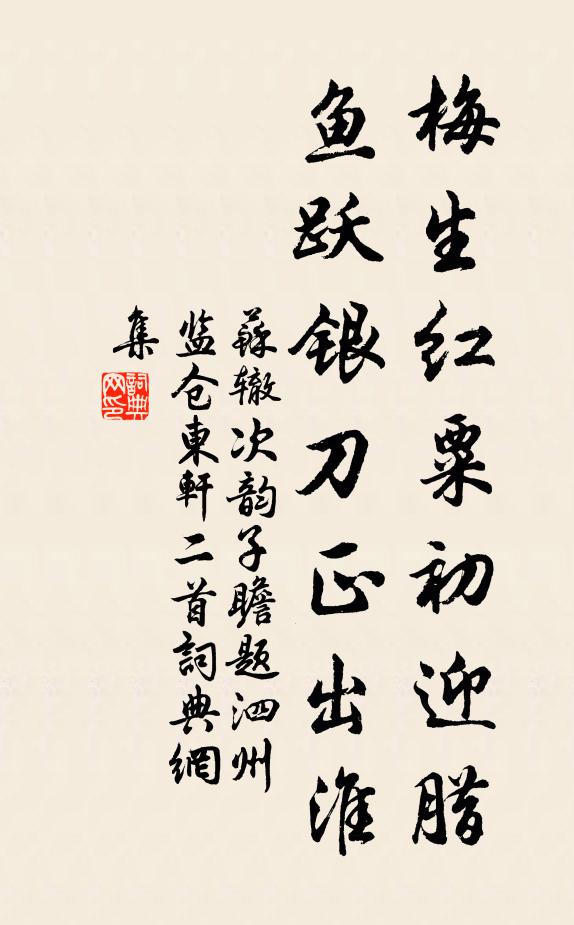 梅生红粟初迎腊
鱼跃银刀正出淮
蘇辙次韵子瞻题泗州
监仓東軒二首詞典網
集
詞典
网印